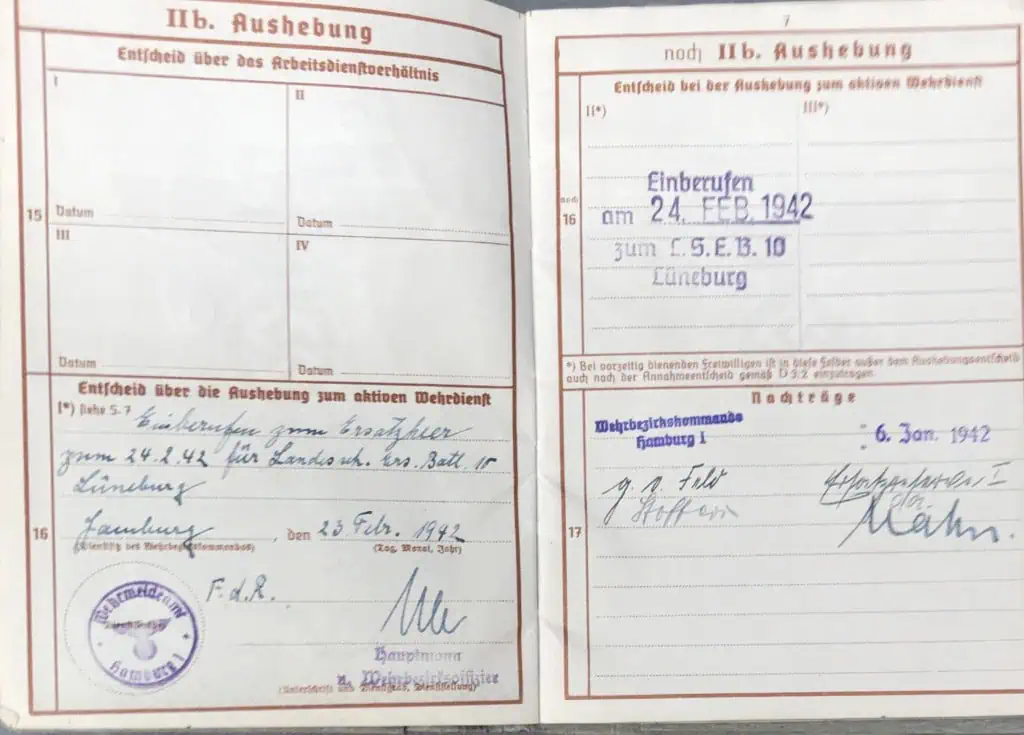 IIb. Aushebung
Entscheid über das Arbeitsdienstverhältnis
I
II
15
Datum
Datum
III
IV
Datum
Datum
Entscheid über die Aushebung zum aktiven Wehrdienst
I*) siehe S. 7
Einberufen zum Ersatzheer
zum 24.2.42 für Landessch. Ers. Batl. 10
Lüneburg
16
Hamburg, den 23 Febr. 1942
(Dienstsitz des Wehrbezirkskommandos)
(Tag, Monat, Jahr)
F.d.R.
Wehrmeldeamt
Hamburg 1
Hauptmann
u. Wehrbezirksoffizier
(Unterschrift und Dienstgrad, Dienststellung)
7
noch IIb. Aushebung
Entscheid bei der Aushebung zum aktiven Wehrdienst
II*)
III*)
noch
16
Einberufen
am 24. FEB. 1942
zum L.S.E.B. 10
Lüneburg
*) Bei vorzeitig dienenden Freiwilligen ist in diese Felder außer dem Aushebungsentscheid
auch noch der Annahmeentscheid gemäß D 3/2 einzutragen.
Nachträge
Wehrbezirkskommando
Hamburg I
6. Jan. 1942
g. v. Feld
Ersatzreserve I
17